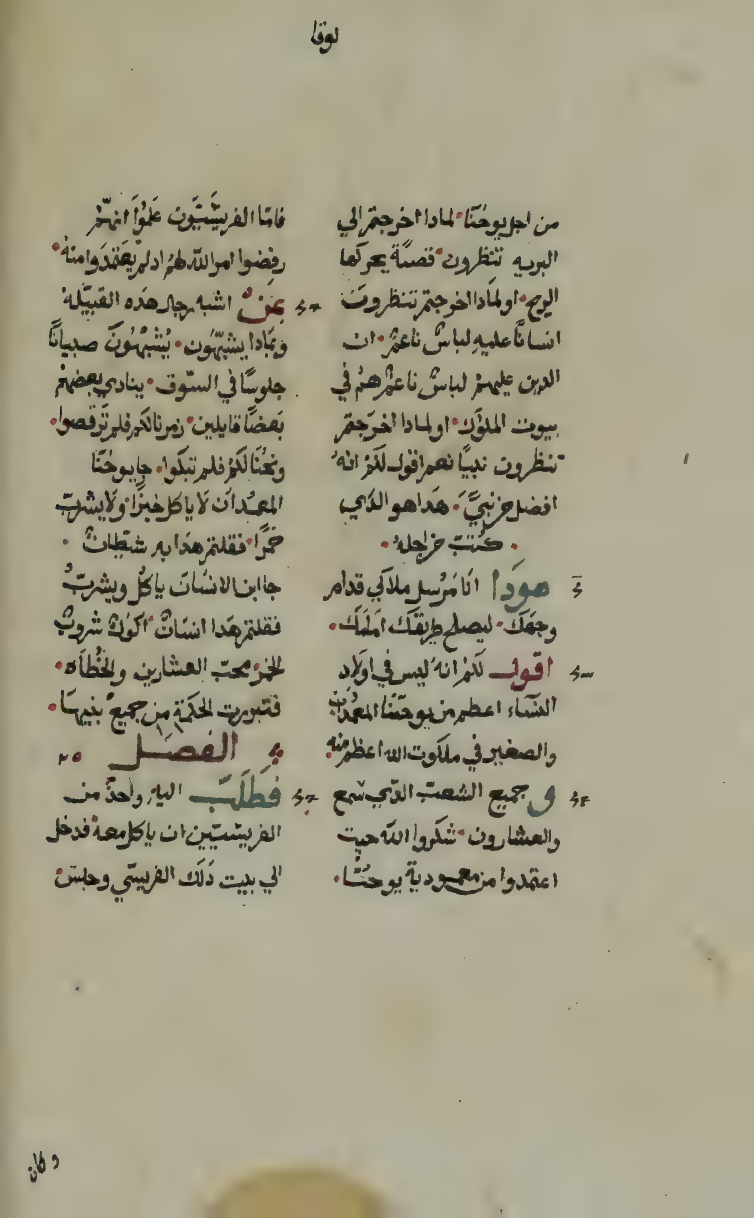 لوقا
من اجل يوحَنّا لمادا اخرجتم الي
البريه تنظرون قصبَة يحركها
الريح او لمادا اخرجتم تنظرون
انسانًا عليه لباسٌ ناعمٌ ان
الدين عليهم لباسٌ ناعمٌ هم في
بيوت الملوك او لمادا اخرجتم
تنظرون نبيًا نعم اقول لكم انهُ
افضل من نبيّ هَدا هو الذي
كُتبَ من اجله
هودا انا مرسل ملاكي قدام
وجهَك ليصلح طريقك امامك
اقول لكم انه ليس في اولاد
النساء اعظم من يوحنّا المعمدان
والصغير في ملكوت الله اعظم منه
و جميع الشعب الذي سمع
والعشارون شكروا الله حيت
اعتمدوا من معمودية يوحنّا
فامّا الفريسّيون عَلمُوا انهم
رفضوا امر الله لهم اد لم يعتمدوا منهُ
بمن اشبه رجال هَده القبيلة
وبمادا يشبّهون يُشبهُونَ صبيانًا
جلوسًا في السّوق ينادي بعضهم
بَعضًا قايلين زمرنا لكم فلم ترقصوا
ونُحنَا لكم فلم تبكوا جا يوحَنّا
المعمدان لا ياكل خبزًا ولا يشربُ
خمرًا فقلتم هَدا به شيطانٌ
جا ابن الانسَان ياكلُ ويشربُ
فقلتم هَدا انسَانٌ اكولٌ شروبٌ
للخمر محبّ العشارين والخُطاه
فتبررت الحكمة من جميع بنيهَا
الفصل ٢٥
فطَلَبَ اليه واحدٌ من
الفريسّيين ان ياكل معهُ فدخل
الي بيت ذلَك الفريسّي وجلسَ
وكان